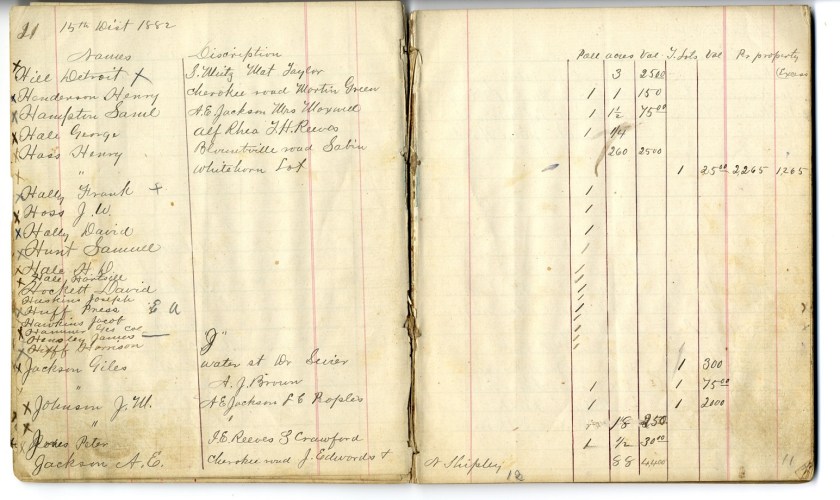 21 15th Dist 1882
Names Discription Poll acres Val T. Lots Val Ps property
x Hill Detroit x S. Meitz Mat Taylor 3 2500 Exass
x Henderson Henry cherokee road Mortin Green 1 1 150
x Hampton Saml A.E. Jackson Mrs Maxwell 1 1½ 75.00
x Hale George alf Rhea T.H. Reeves 1 1/4
x Hass Henry Blountville road Sabin 260 2500
" Whitehorn Lot 1 25.00 2265 1265
x Hally Frank x 1
x Hoss J. W. 1
x Hally David 1
x Hunt Samuell 1
x Hale H. D.
x Hale
Hockett David
Haskins Joseph
x Huff Press E A
Hawkins Jacob
x Geo Col
x Hensley James —
x Huff Harrison "J"
x Jackson Giles water st Dr Sevier 1 300
" A. J. Brown 1 1 75.00
x Johnson J. M. A E Jackson L E Peoples 1 1 2000
" " 18 250
x Jones Peter I. E. Reeves S Crawford 1 1/2 30.00
Jackson A. E. cherokee road J. Edwards + N Shipley 88 4400
12 11